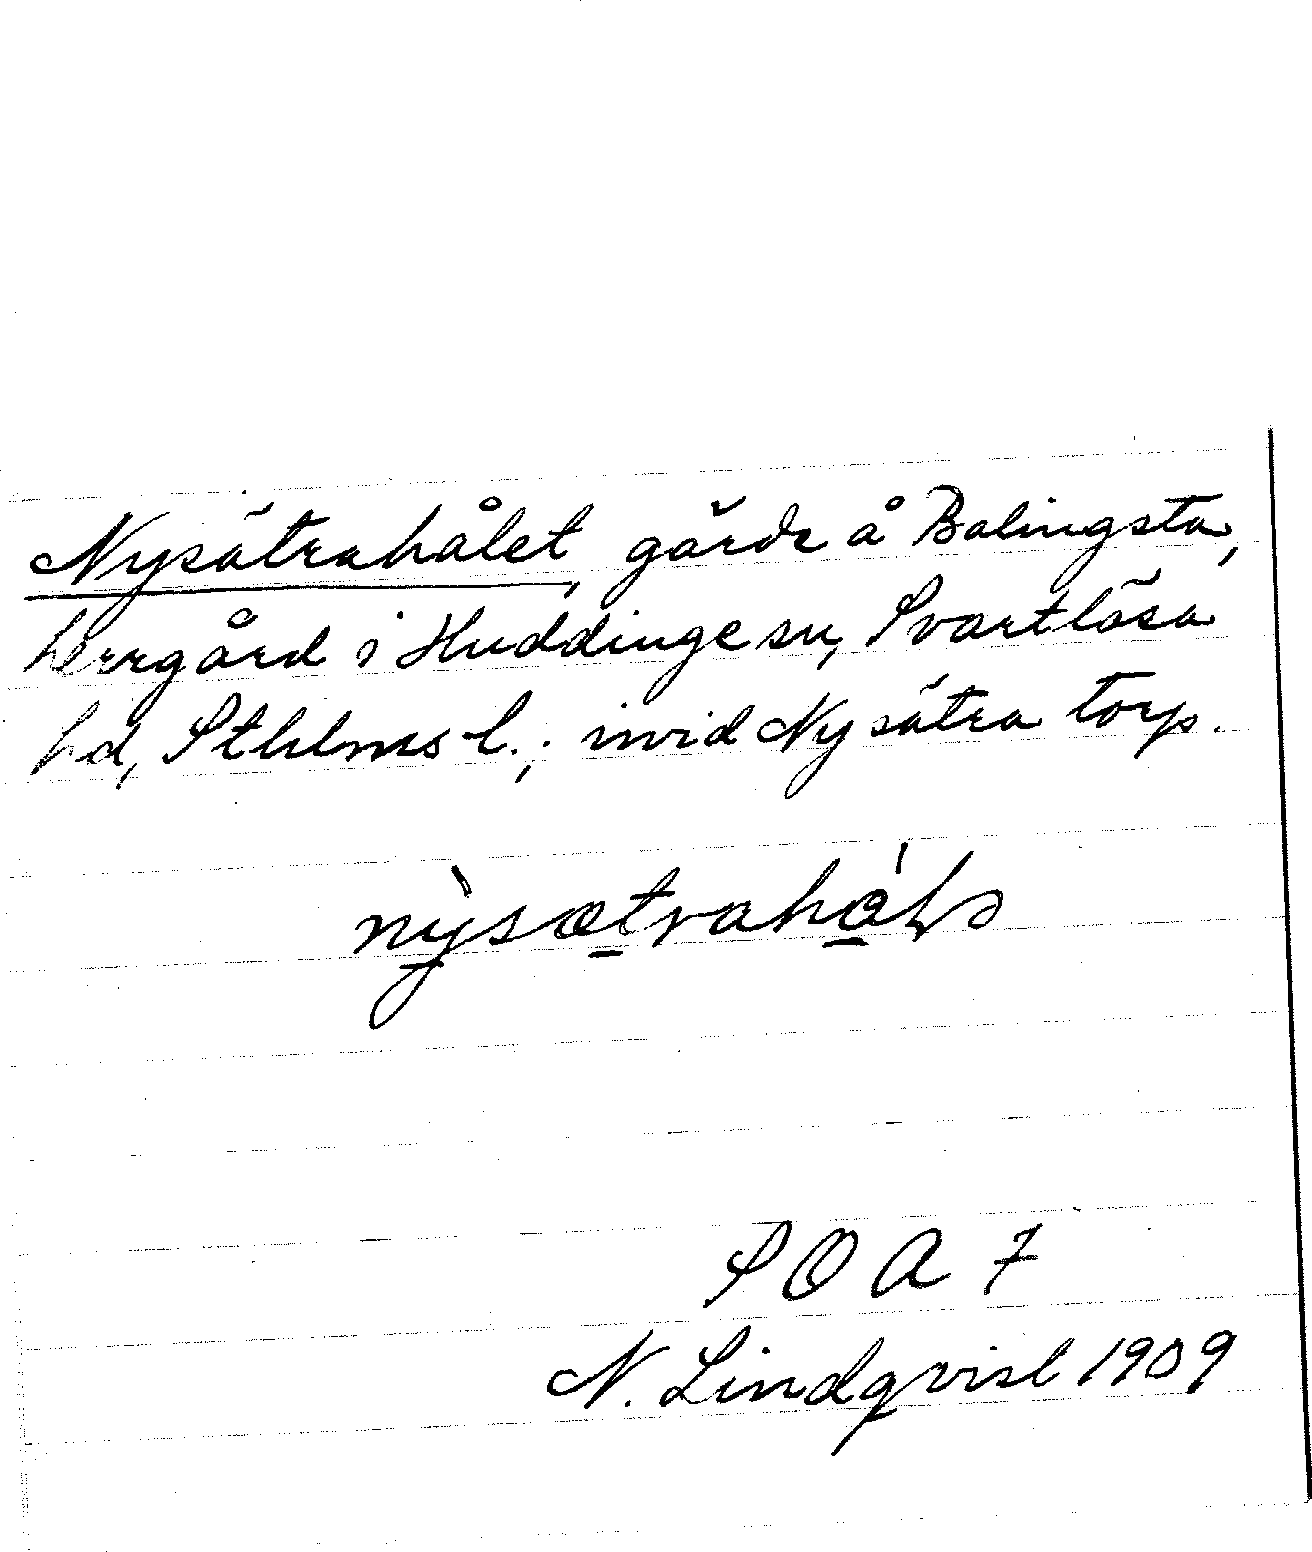 Nysätrahålet, gärde å Balingsta,
herrgård i Huddinge sn, Svartlösa
hd, Sthlms l.; invid Nysätra torp.
SOA 7
N. Lindqvist 1909